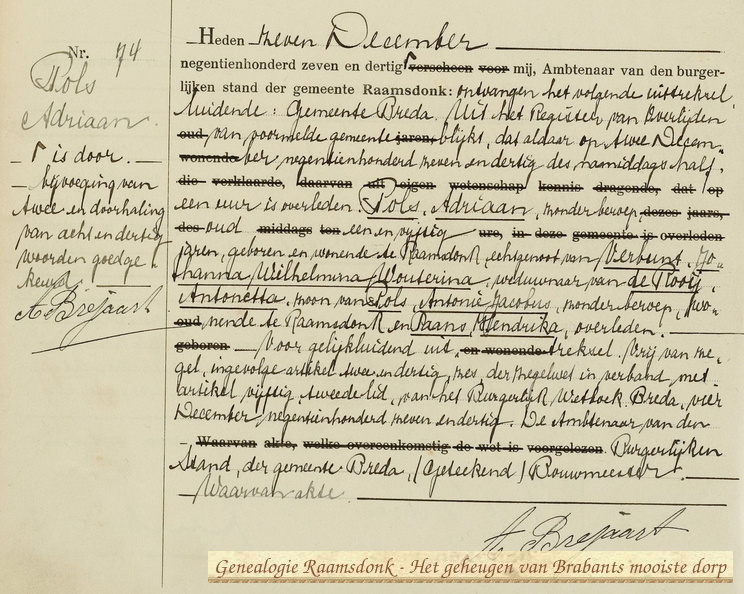 Nr. 74
Pols
Adriaan.
is door.
bijvoeging van
twee en doorhaling
van acht en dertig
woorden goedge
keurd.
A Brejaart
Heden zeven December
negentienhonderd zeven en dertig verscheen voor mij, Ambtenaar van den burger-
lijken stand der gemeente Raamsdonk: ontvangen het volgende uittreksel,
luidende: Gemeente Breda. Uit het Register van Overlijden
oud van voormelde gemeente jaren, blijkt, dat aldaar op twee Decem-
wonende ber negentienhonderd zeven en dertig des namiddags half
die verklaarde, daarvan uit eigen wetenschap kennis dragende, dat op
een uur is overleden: Pols, Adriaan, zonder beroep, dezes jaars,
des oud middags ten een en vijftig ure, in deze gemeente is overleden
jaren, geboren en wonende te Raamsdonk echtgenoot van Verbunt, Jo-
hanna Wilhelmina Wouterina, weduwnaar van de Rooij,
Antonetta, zoon van Pols, Antonie Jacobus, zonder beroep, wo-
oud nende te Raamsdonk en Paans Hendrika, overleden.
geboren Voor gelijkluidend uit, en wonende treksel. Vrij van ze-
gel, ingevolge artikel twee en dertig, zes, der zegelwet in verband met
artikel vijftig tweede lid, van het Burgerlijk Wetboek. Breda, vier
December negentienhonderd zeven en dertig. De Ambtenaar van den
Waarvan akte, welke overeenkomstig de wet is voorgelezen. Burgerlijken
Stand, der gemeente Breda, (geteekend) Bouwmeester.
Waarvan akte.
A. Brejaart
Genealogie Raamsdonk - Het geheugen van Brabants mooiste dorp